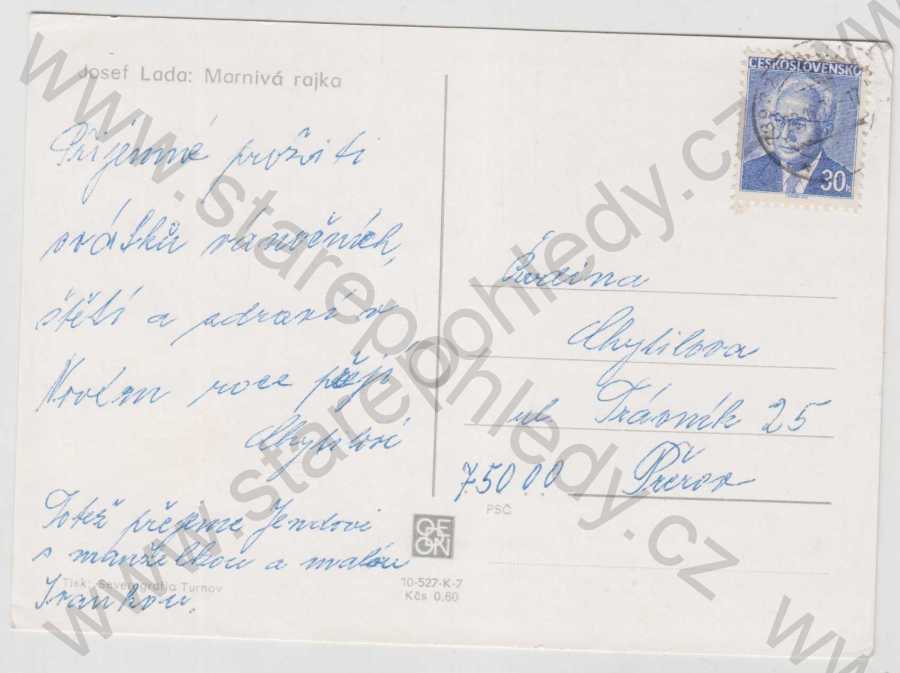 Josef Lada: Marnivá rajka
Příjemné prožití
svátků vánočních,
štěstí a zdraví v
Novém roce přejí
Chytilovi
Totéž přejeme Jendovi
s manželkou a malou
Ivankou.
Tisk: Severografia Turnov
ODEON
10-527-K-7
Kčs 0.60
ČESKOSLOVENSKO
30h
Rodina
Chytilova
ul. Trávník 25
75000 Přerov
PSČ
www.starepohledy.cz
www.starepohledy.cz